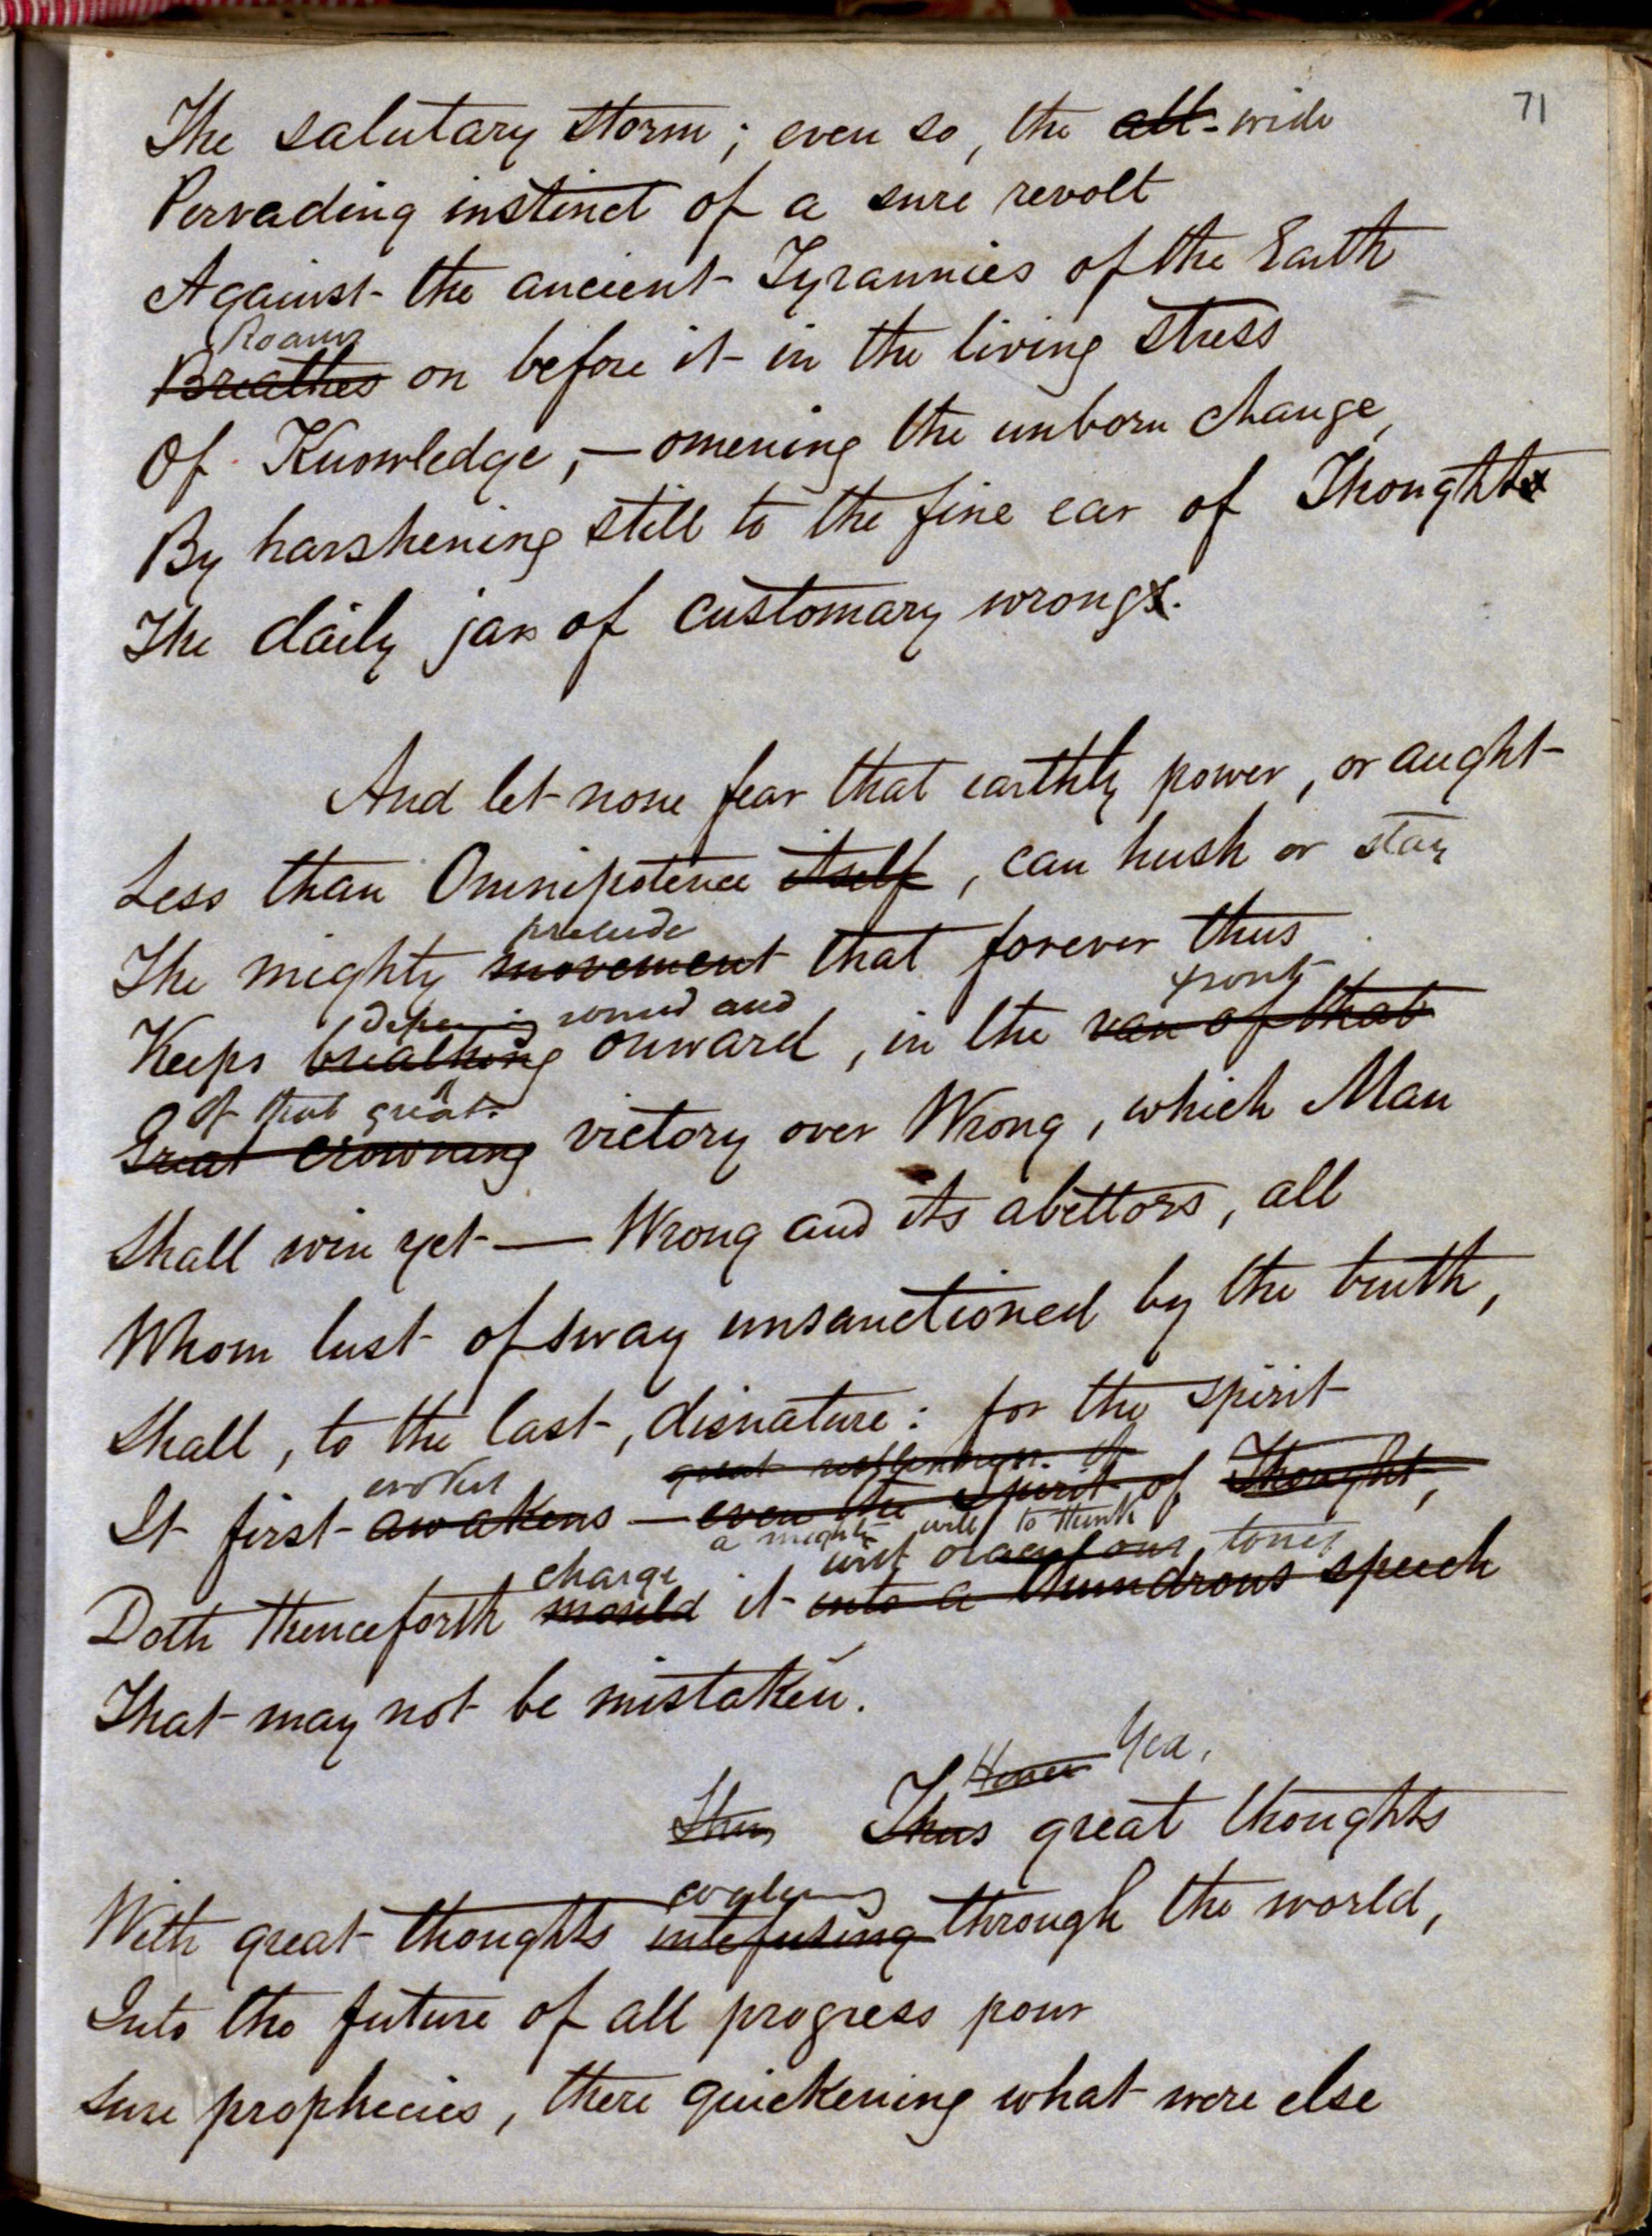 71
The salutary storm; even so, the all-wide
Pervading instinct of a sure revolt
Against the ancient Tyrannies of the Earth
Roams
Breathes on before it in the living stress
Of Knowledge,—omening the unborn change,
By harshening still to the fine ear of Thought
The daily jar of customary wrongs.
And let none fear that earthly power, or aught
Less than Omnipotence itself, can hush or stay
prelude
The mighty movement that forever thus
front
round and
Keeps breathing onward, in the van of that
of that great
Great crowning victory over Wrong, which Man
Shall win yet — Wrong and its abettors, all
Whom lust of sway unsanctioned by the truth,
Shall, to the last, disnature: for the spirit
evokes
great
It first awakens — even the spirit of Thought,
a mighty will to think
charge
with oracular tones
Doth thenceforth mould it into a thundrous speech
That may not be mistaken.
Hence Yea,
Thus Thus great thoughts
With great thoughts intefusing through the world,
Into the future of all progress pour
Sure prophecies, there quickening what were else